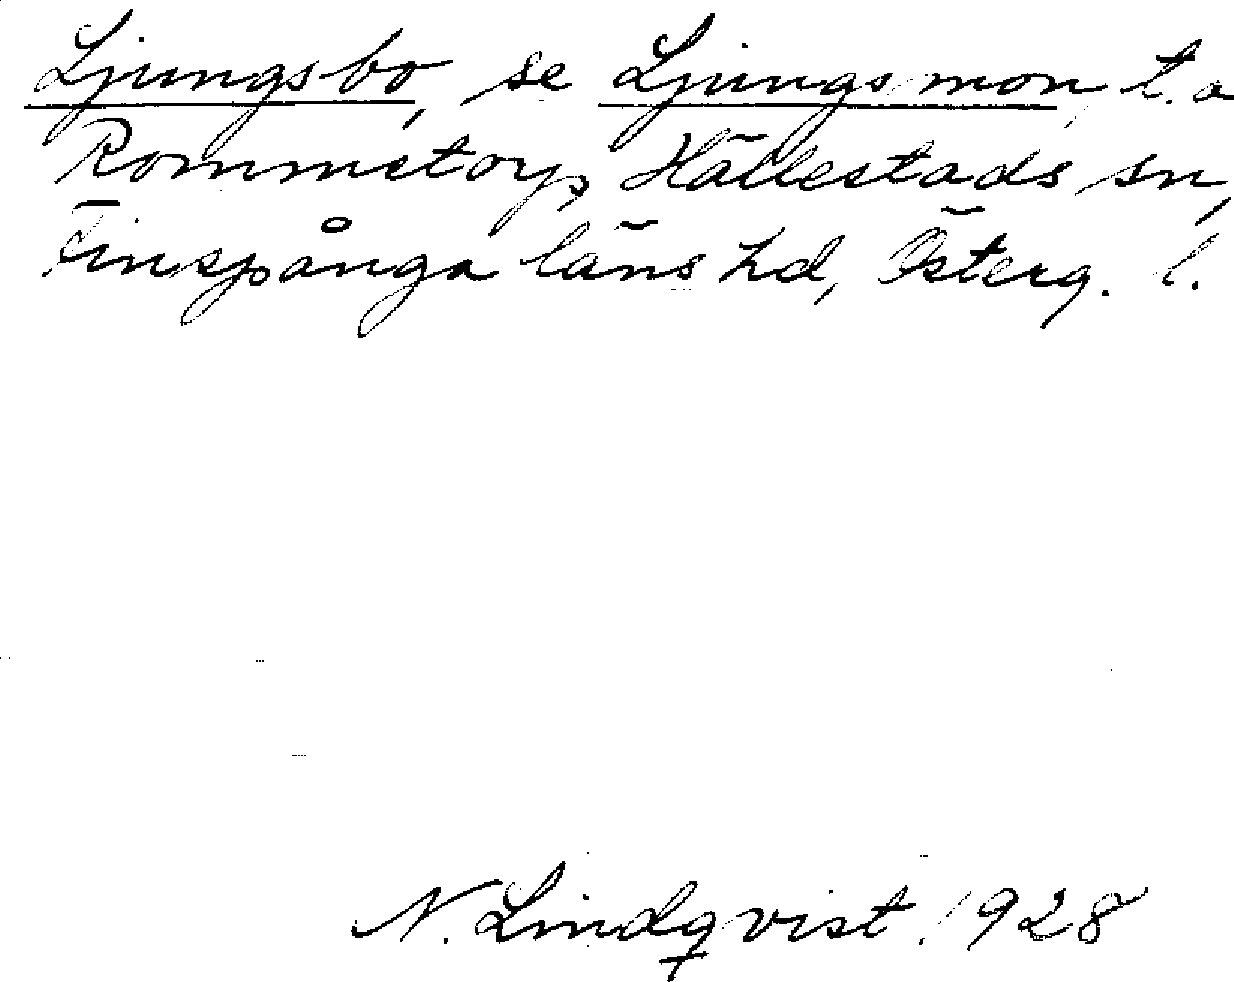 Ljungsbo, se Ljungsmon, t. a
Rommetorp, Hällestads sn,
Finspånga läns hd, Österg. l.
N. Lindqvist. 1928